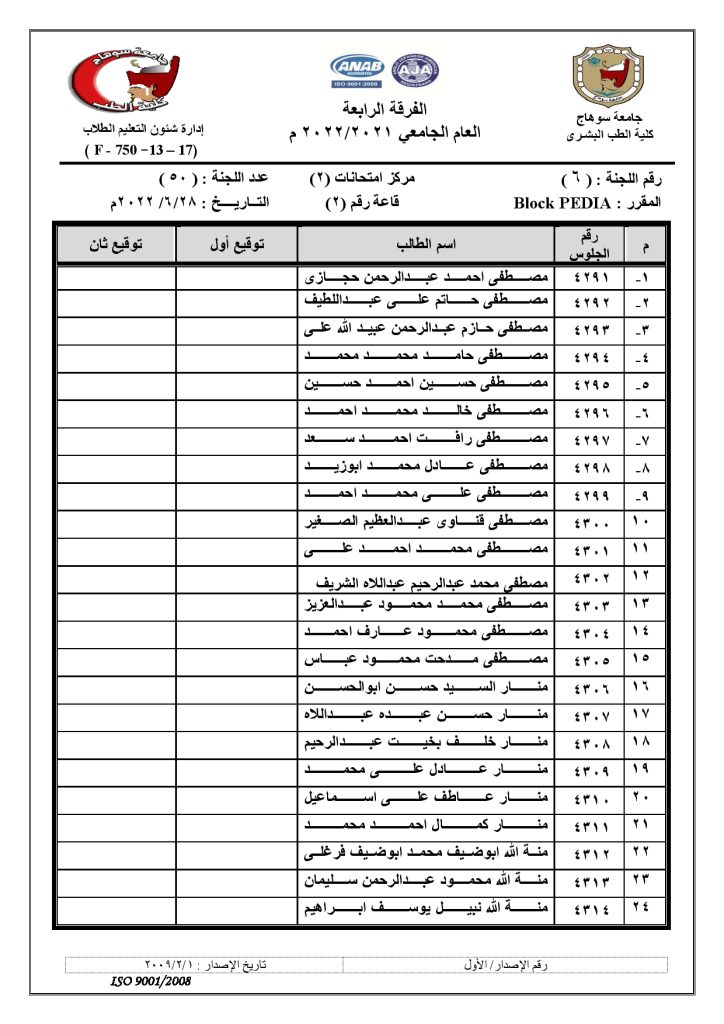 جامعة سوهاج
كلية الطب البشرى
ANAB
ACCREDITED
ISO 9001:2008
AJA
الفرقة الرابعة
العام الجامعي ٢٠٢٢/٢٠٢١ م
جامعة سوهاج
كلية الطب
إدارة شئون التعليم الطلاب
( F - 750 –13 – 17)
رقم اللجنة : ( ٦ ) مركز امتحانات (٢) عدد اللجنة : ( ٥٠ )
المقرر : Block PEDIA قاعة رقم (٢) التـاريـــخ : ٢٠٢٢/٦/٢٨م
م رقم الجلوس اسم الطالب توقيع أول توقيع ثان
١- ٤٢٩١ مصطفى احمد عبدالرحمن حجازى
٢- ٤٢٩٢ مصطفى حاتم على عبداللطيف
٣- ٤٢٩٣ مصطفى حازم عبدالرحمن عبيد الله على
٤- ٤٢٩٤ مصطفى حامد محمد محمد
٥- ٤٢٩٥ مصطفى حسين احمد حسين
٦- ٤٢٩٦ مصطفى خالد محمد احمد
٧- ٤٢٩٧ مصطفى رافت احمد سعد
٨- ٤٢٩٨ مصطفى عادل محمد ابوزيد
٩- ٤٢٩٩ مصطفى على محمد احمد
١٠ ٤٣٠٠ مصطفى قناوى عبدالعظيم الصغير
١١ ٤٣٠١ مصطفى محمد احمد على
١٢ ٤٣٠٢ مصطفى محمد عبدالرحيم عبداللاه الشريف
١٣ ٤٣٠٣ مصطفى محمد محمود عبدالعزيز
١٤ ٤٣٠٤ مصطفى محمود عارف احمد
١٥ ٤٣٠٥ مصطفى مدحت محمود عباس
١٦ ٤٣٠٦ منار السيد حسن ابوالحسن
١٧ ٤٣٠٧ منار حسن عبده عبداللاه
١٨ ٤٣٠٨ منار خلف بخيت عبدالرحيم
١٩ ٤٣٠٩ منار عادل على محمد
٢٠ ٤٣١٠ منار عاطف على اسماعيل
٢١ ٤٣١١ منار كمال احمد محمد
٢٢ ٤٣١٢ منة الله ابوضيف محمد ابوضيف فرغلى
٢٣ ٤٣١٣ منة الله محمود عبدالرحمن سليمان
٢٤ ٤٣١٤ منة الله نبيل يوسف ابراهيم
رقم الإصدار/ الأول تاريخ الإصدار : ٢٠٠٩/٢/١
ISO 9001/2008